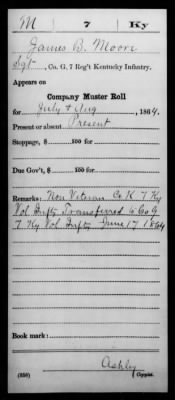 M 7 Ky
James B. Moore
Sgt, Co. G, 7 Reg't Kentucky Infantry.
Appears on
Company Muster Roll
for July & Aug, 1864.
Present or absent Present
Stoppage, $ 100 for
Due Gov't, $ 100 for
Remarks: Non Veteran Co K 7 Ky
Vol Infty Transferred to Co G
7 Ky Vol Infty June 17 1864
Book mark:
Ashley
(858) Copyist.